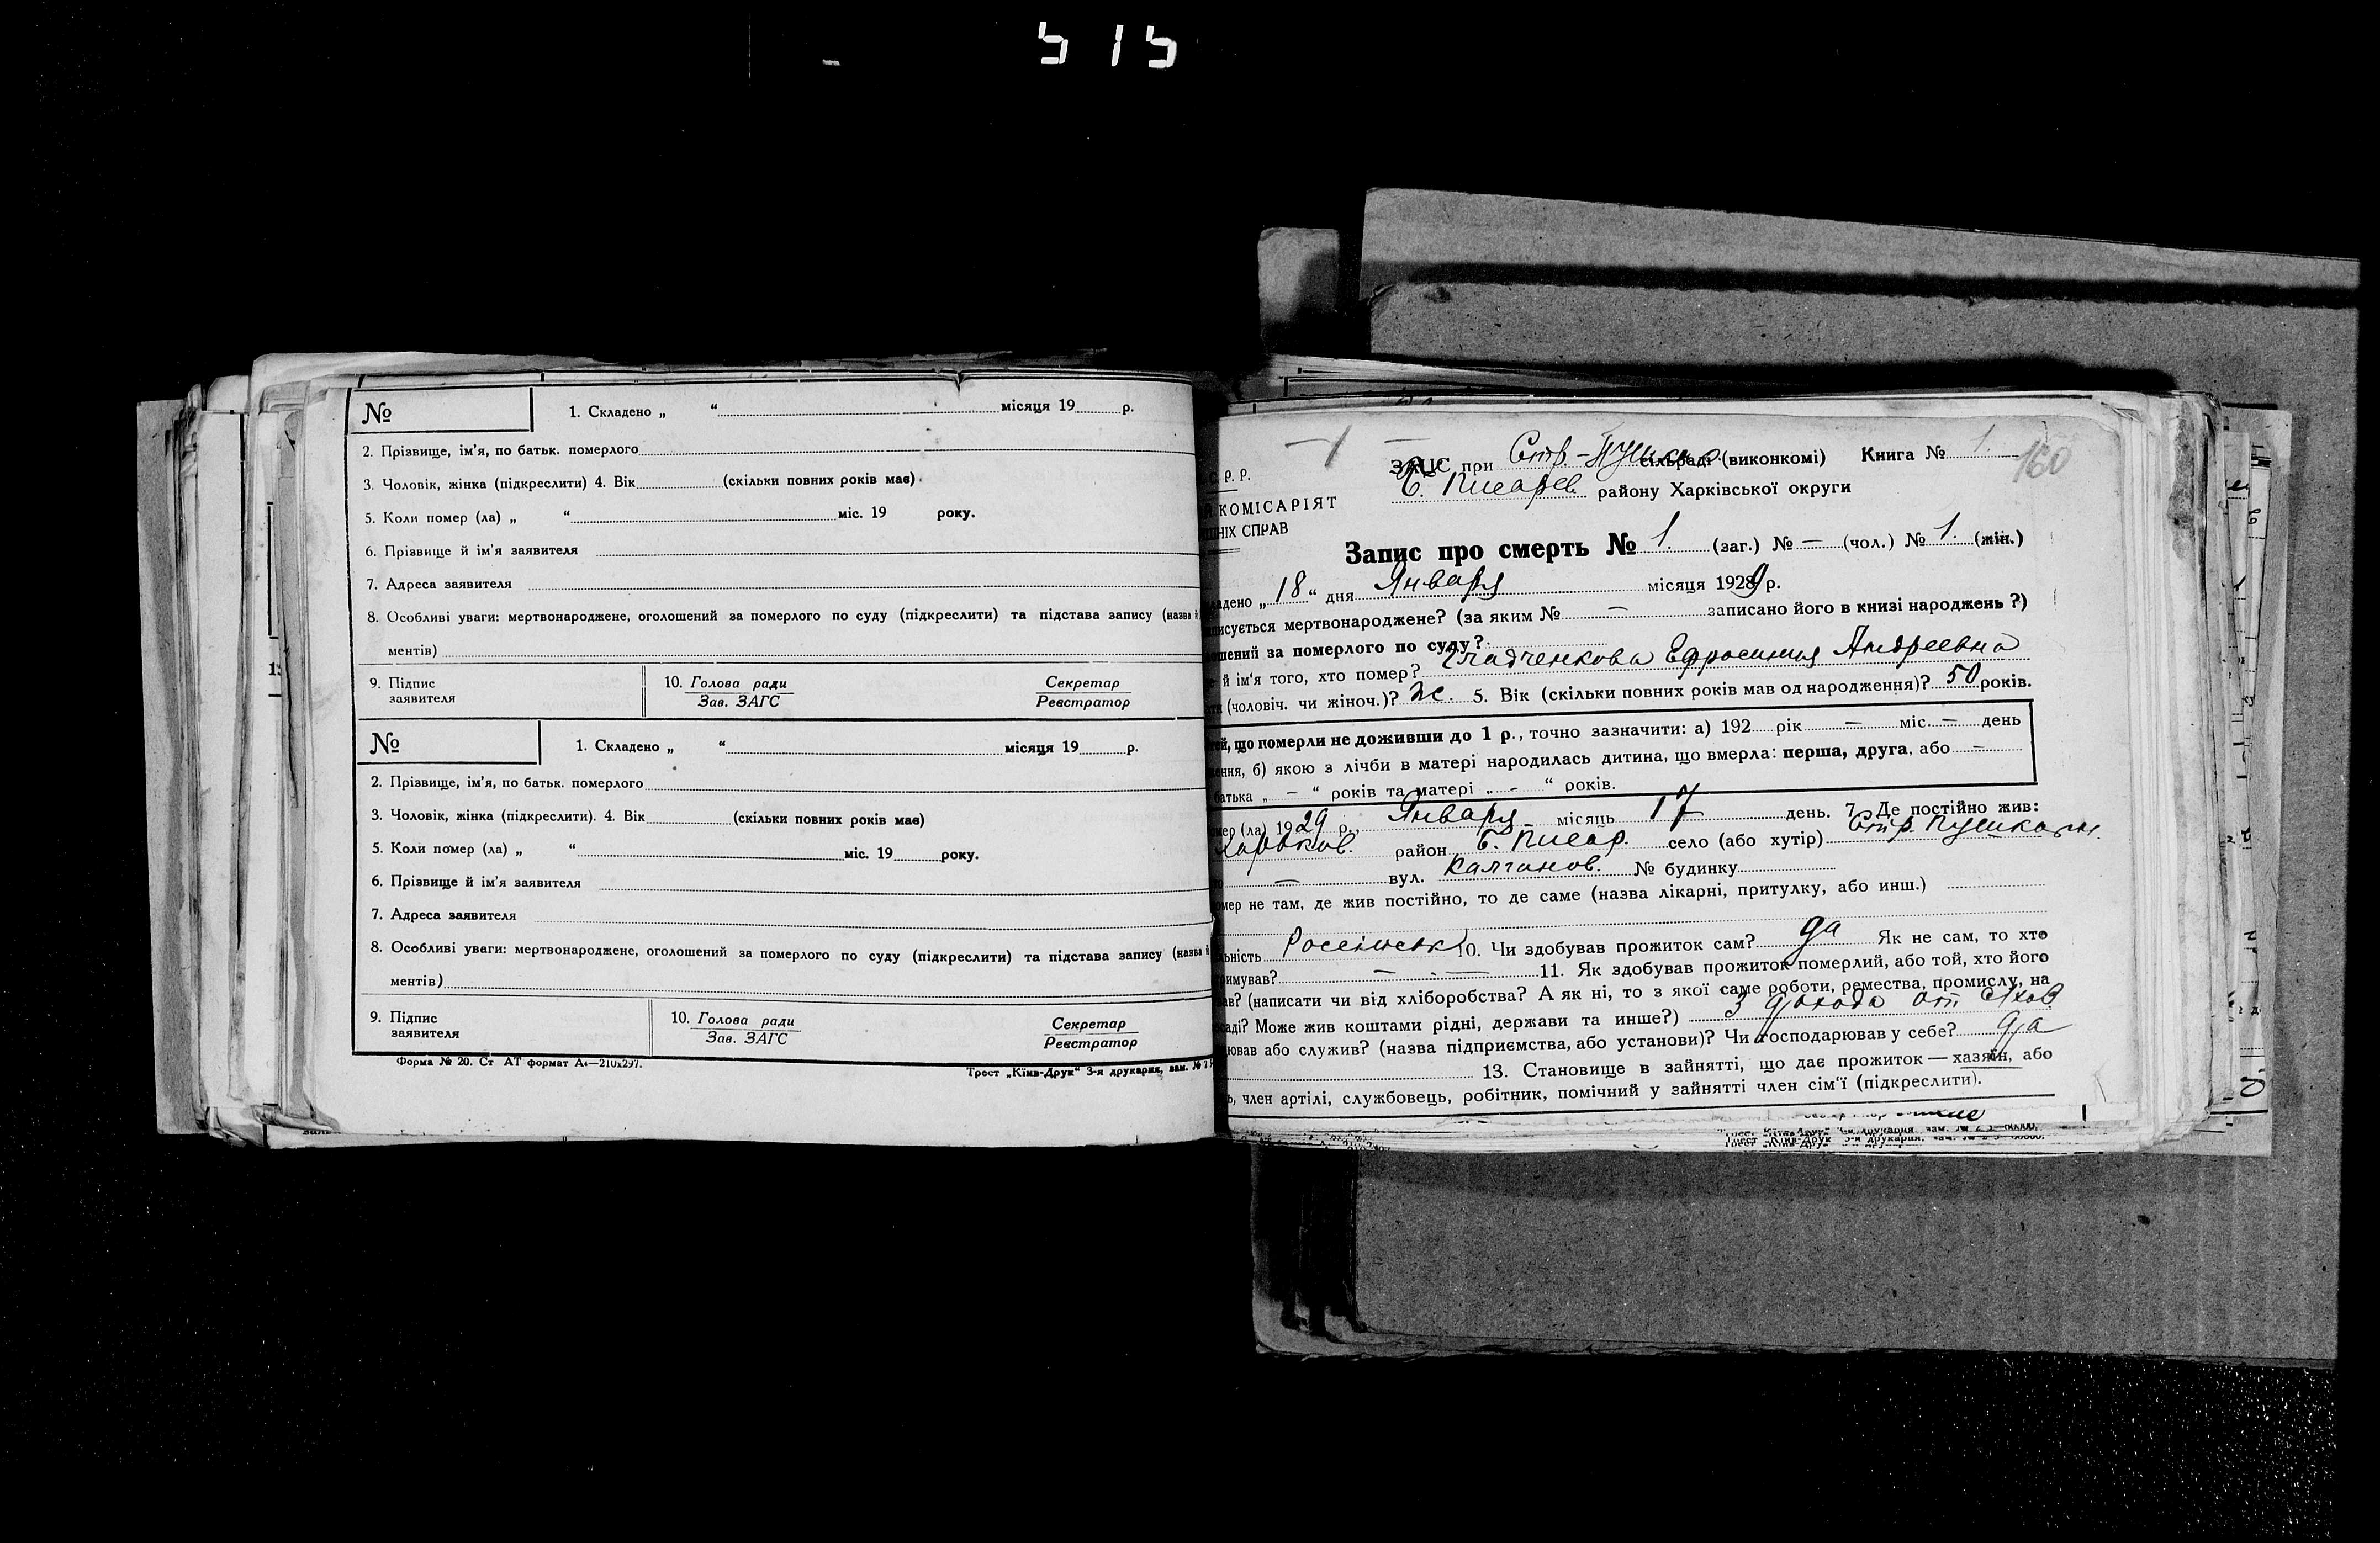 515
№
1. Складено „ “ місяця 19 р.
2. Прізвище, ім'я, по батьк. померлого
3. Чоловік, жінка (підкреслити) 4. Вік (скільки повних років має)
5. Коли помер (ла) „ “ міс. 19 року.
6. Прізвище й ім'я заявителя
7. Адреса заявителя
8. Особливі уваги: мертвонароджене, оголошений за померлого по суду (підкреслити) та підстава запису (назва й
ментів)
9. Підпис заявителя
10. Голова ради Секретар
Зав. ЗАГС Реєстратор
№
1. Складено „ “ місяця 19 р.
2. Прізвище, ім'я, по батьк. померлого
3. Чоловік, жінка (підкреслити). 4. Вік (скільки повних років має)
5. Коли помер (ла) „ “ міс. 19 року.
6. Прізвище й ім'я заявителя
7. Адреса заявителя
8. Особливі уваги: мертвонароджене, оголошений за померлого по суду (підкреслити) та підстава запису (назва й
ментів)
9. Підпис заявителя
10. Голова ради Секретар
Зав. ЗАГС Реєстратор
Форма № 20. Ст АТ формат А4—210x297.
Трест „Київ-Друк“ 3-я друкарня, зам. №
160
С. Р. Р.
КОМІСАРІЯТ
ШНІХ СПРАВ
ЗАГС при Стр.-Пушкар. сільраді (виконкомі) Книга № 1.
Б. Писарев. району Харківської округи
Запис про смерть № 1. (заг.) № — (чол.) № 1. (жін.)
ладено „18“ дня Января місяця 1929 р.
писується мертвонароджене? (за яким № — записано його в книзі народжень?)
ошений за померлого по суду?
й ім'я того, хто помер? Гладченкова Ефросиния Андреевна
(чоловіч. чи жіноч.)? ж. 5. Вік (скільки повних років мав од народження)? 50 років.
тей, що померли не доживши до 1 р., точно зазначити: а) 192 рік — міс. — день
ення, б) якою з лічби в матері народилась дитина, що вмерла: перша, друга, або —
батька „ — “ років та матері „ - “ років.
мер (ла) 1929 р., Января місяць 17 день. 7. Де постійно жив:
Харьков. район Б. Писар. село (або хутір) Стр. Пушкарн.
— вул. Калганов. № будинку
мер не там, де жив постійно, то де саме (назва лікарні, притулку, або инш.)
ьність 10. Чи здобував прожиток сам? да Як не сам, то хто
римував? — . — 11. Як здобував прожиток померлий, або той, хто його
ав? (написати чи від хліборобства? А як ні, то з якої саме роботи, ремества, промислу, на
саді? Може жив коштами рідні, держави та инше?) З дохода от с/хоз
ював або служив? (назва підприємства, або установи)? Чи господарював у себе? да
13. Становище в зайнятті, що дає прожиток — хазяїн, або
ь, член артілі, службовець, робітник, помічний у зайнятті член сім'ї (підкреслити).